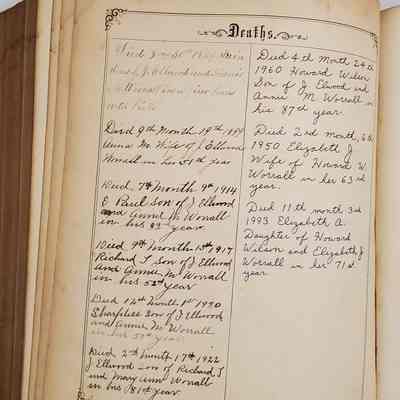 Deaths.
Died
of J. Ellwood and Annie
M. Worrall
Died 9th Month 19th
Anna M. Wife of J Ellwood
Worrall in her year
Died, 7th Month 9th 1914
E Paul Son of J Ellwood
and Annie M Worrall
in his year
Died 9th Month 15th 1917
Richard T. Son of J Ellwood
and Annie M Worrall
in his year
Died 12th Month 1st 1920
Son of J Ellwood
and Annie M. Worrall
in his year
Died 2nd Month 17th 1922
J Ellwood Son of Richard T
and Mary Ann Worrall
in his 81st year
Died 4th Month 24th
1960 Howard Wilson
Son of J. Elwood and
Annie M. Worrall in
his 87th year.
Died 2nd month, 6th
1950 Elizabeth J
Wife of Howard W.
Worrall in her 63rd
year.
Died 11th month 3rd
1993 Elizabeth A.
Daughter of Howard
Wilson and Elizabeth J
Worrall in her 71st
year.